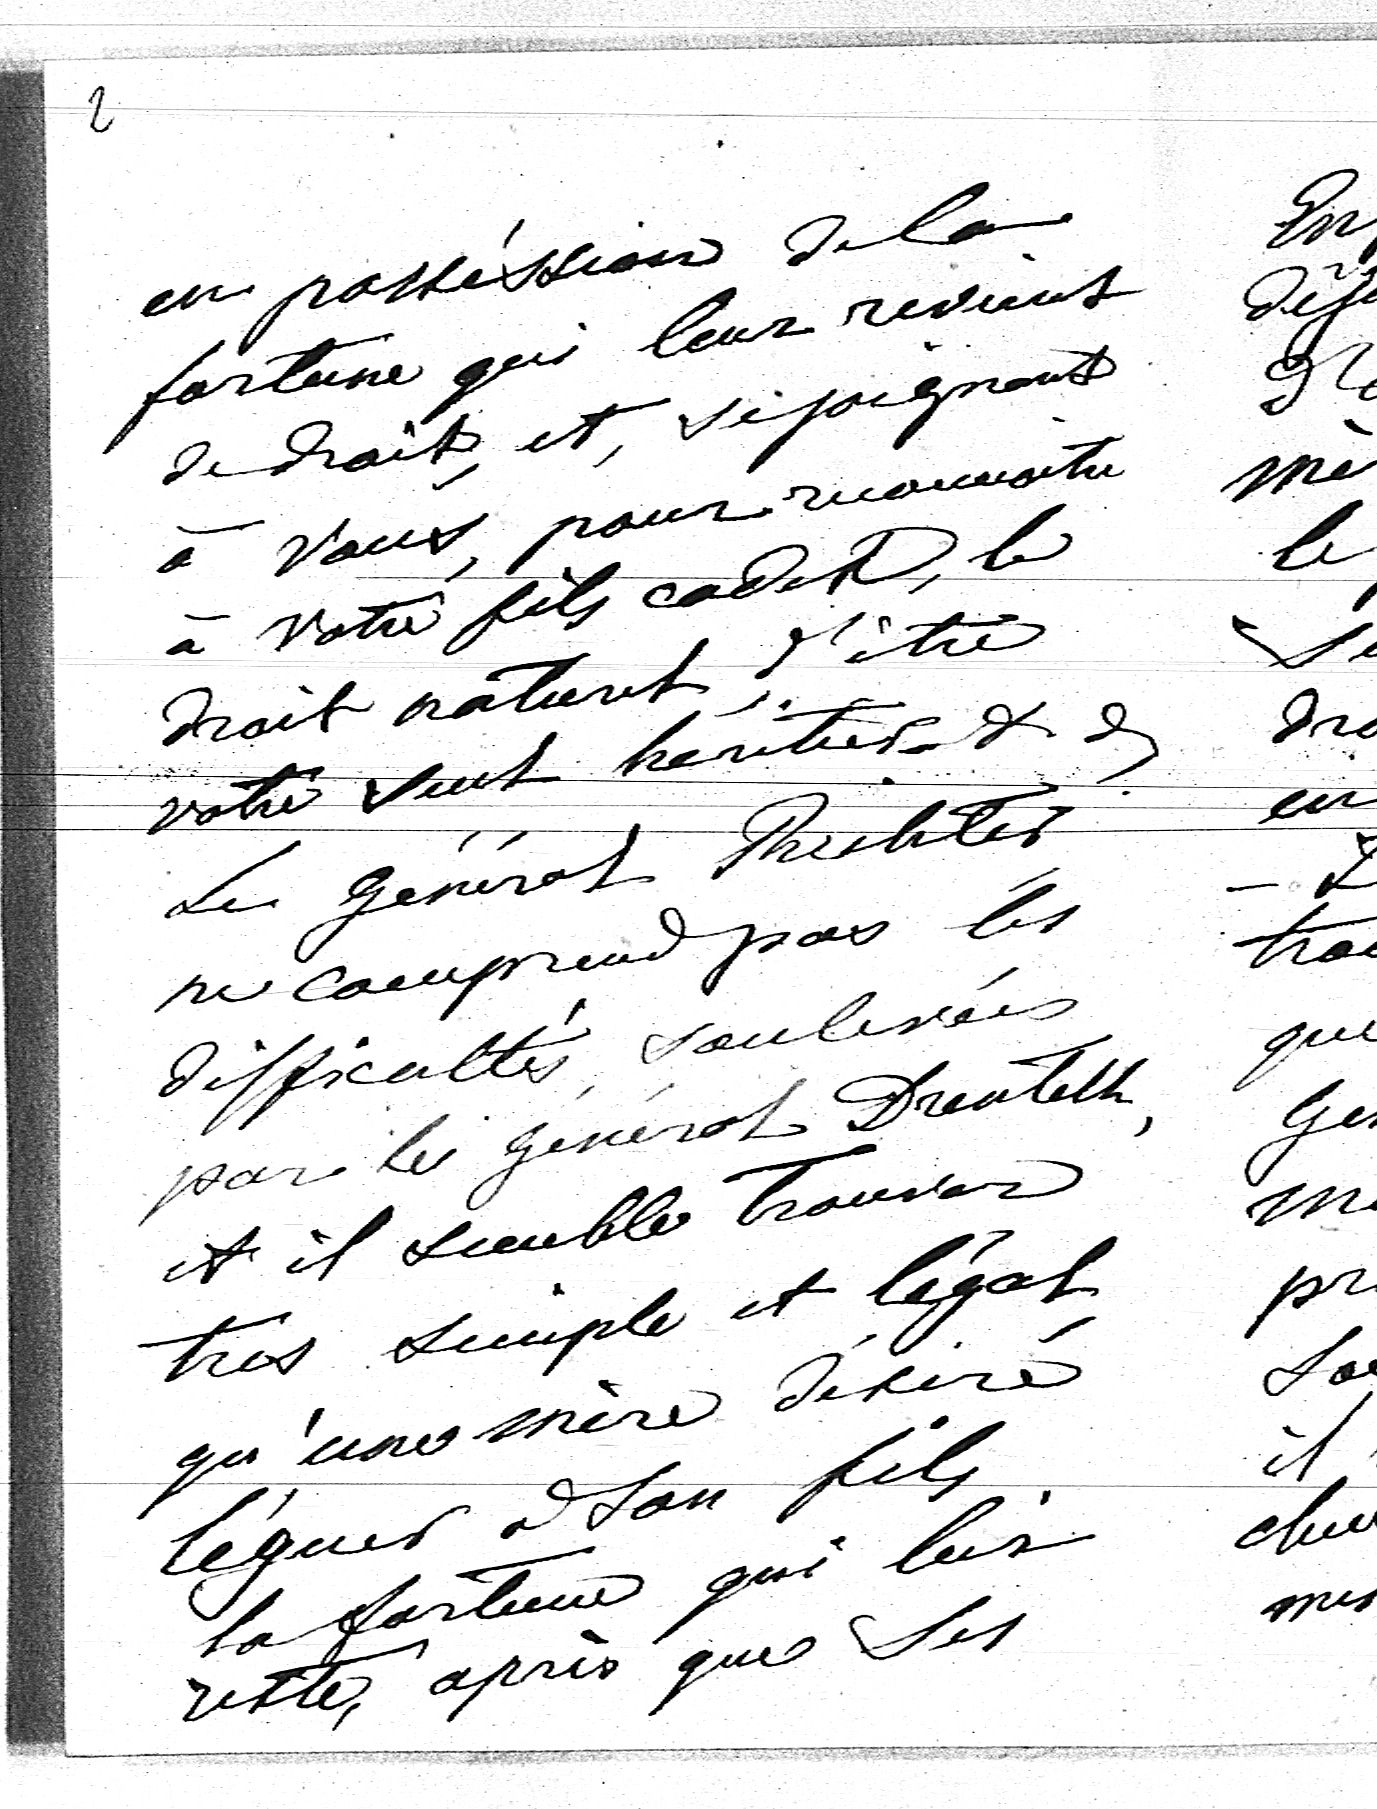 2
en possession de la
fortune qui leur revient
de droit, et, se joignant
à vous, pour reconnaître
à votre fils cadet, le
droit naturel, d'être
votre seul héritier.
Le Général Richter
ne comprend pas les
difficultés, soulevées
par le Général Drenteln,
et il semble trouver
très simple et légal
qu'une mère désire
léguer à son fils
la fortune qui lui
reste, après que ses
En
déjà
mè
le
dro
en
trou
que
Gén
pr
il
mes